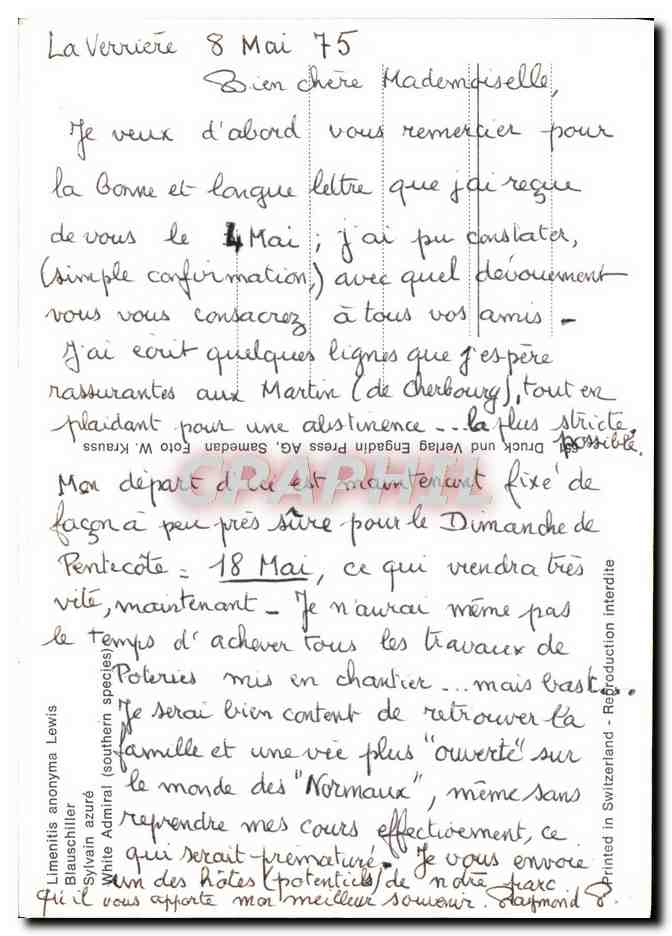 La Verrière 8 Mai 75
Bien chère Mademoiselle,
Je veux d'abord vous remercier pour
la bonne et longue lettre que j'ai reçue
de vous le 4 Mai ; j'ai pu constater,
(simple confirmation,) avec quel dévouement
vous vous consacrez à tous vos amis -
J'ai écrit quelques lignes que j'espère
rassurantes aux Martin (de Cherbourg), tout en
plaidant pour une abstinence ... la plus stricte
possible.
Druck und Verlag Engadin Press AG, Samedan Foto W. Krauss
GRAPHIL
Mon départ d'ici est maintenant fixé de
façon à peu près sûre pour le Dimanche de
Pentecôte = 18 Mai, ce qui viendra très
vite, maintenant - Je n'aurai même pas
le temps d'achever tous les travaux de
Poteries mis en chantier ... mais bast...
Je serai bien content de retrouver la
famille et une vie plus "ouverte" sur
le monde des "Normaux", même sans
reprendre mes cours effectivement, ce
qui serait prématuré - Je vous envoie
un des hôtes (potentiels) de notre parc
Qu'il vous apporte mon meilleur souvenir. Raymond
Limenitis anonyma Lewis
Blauschiller
Sylvain azuré
White Admiral (southern species)
Printed in Switzerland - Reproduction interdite